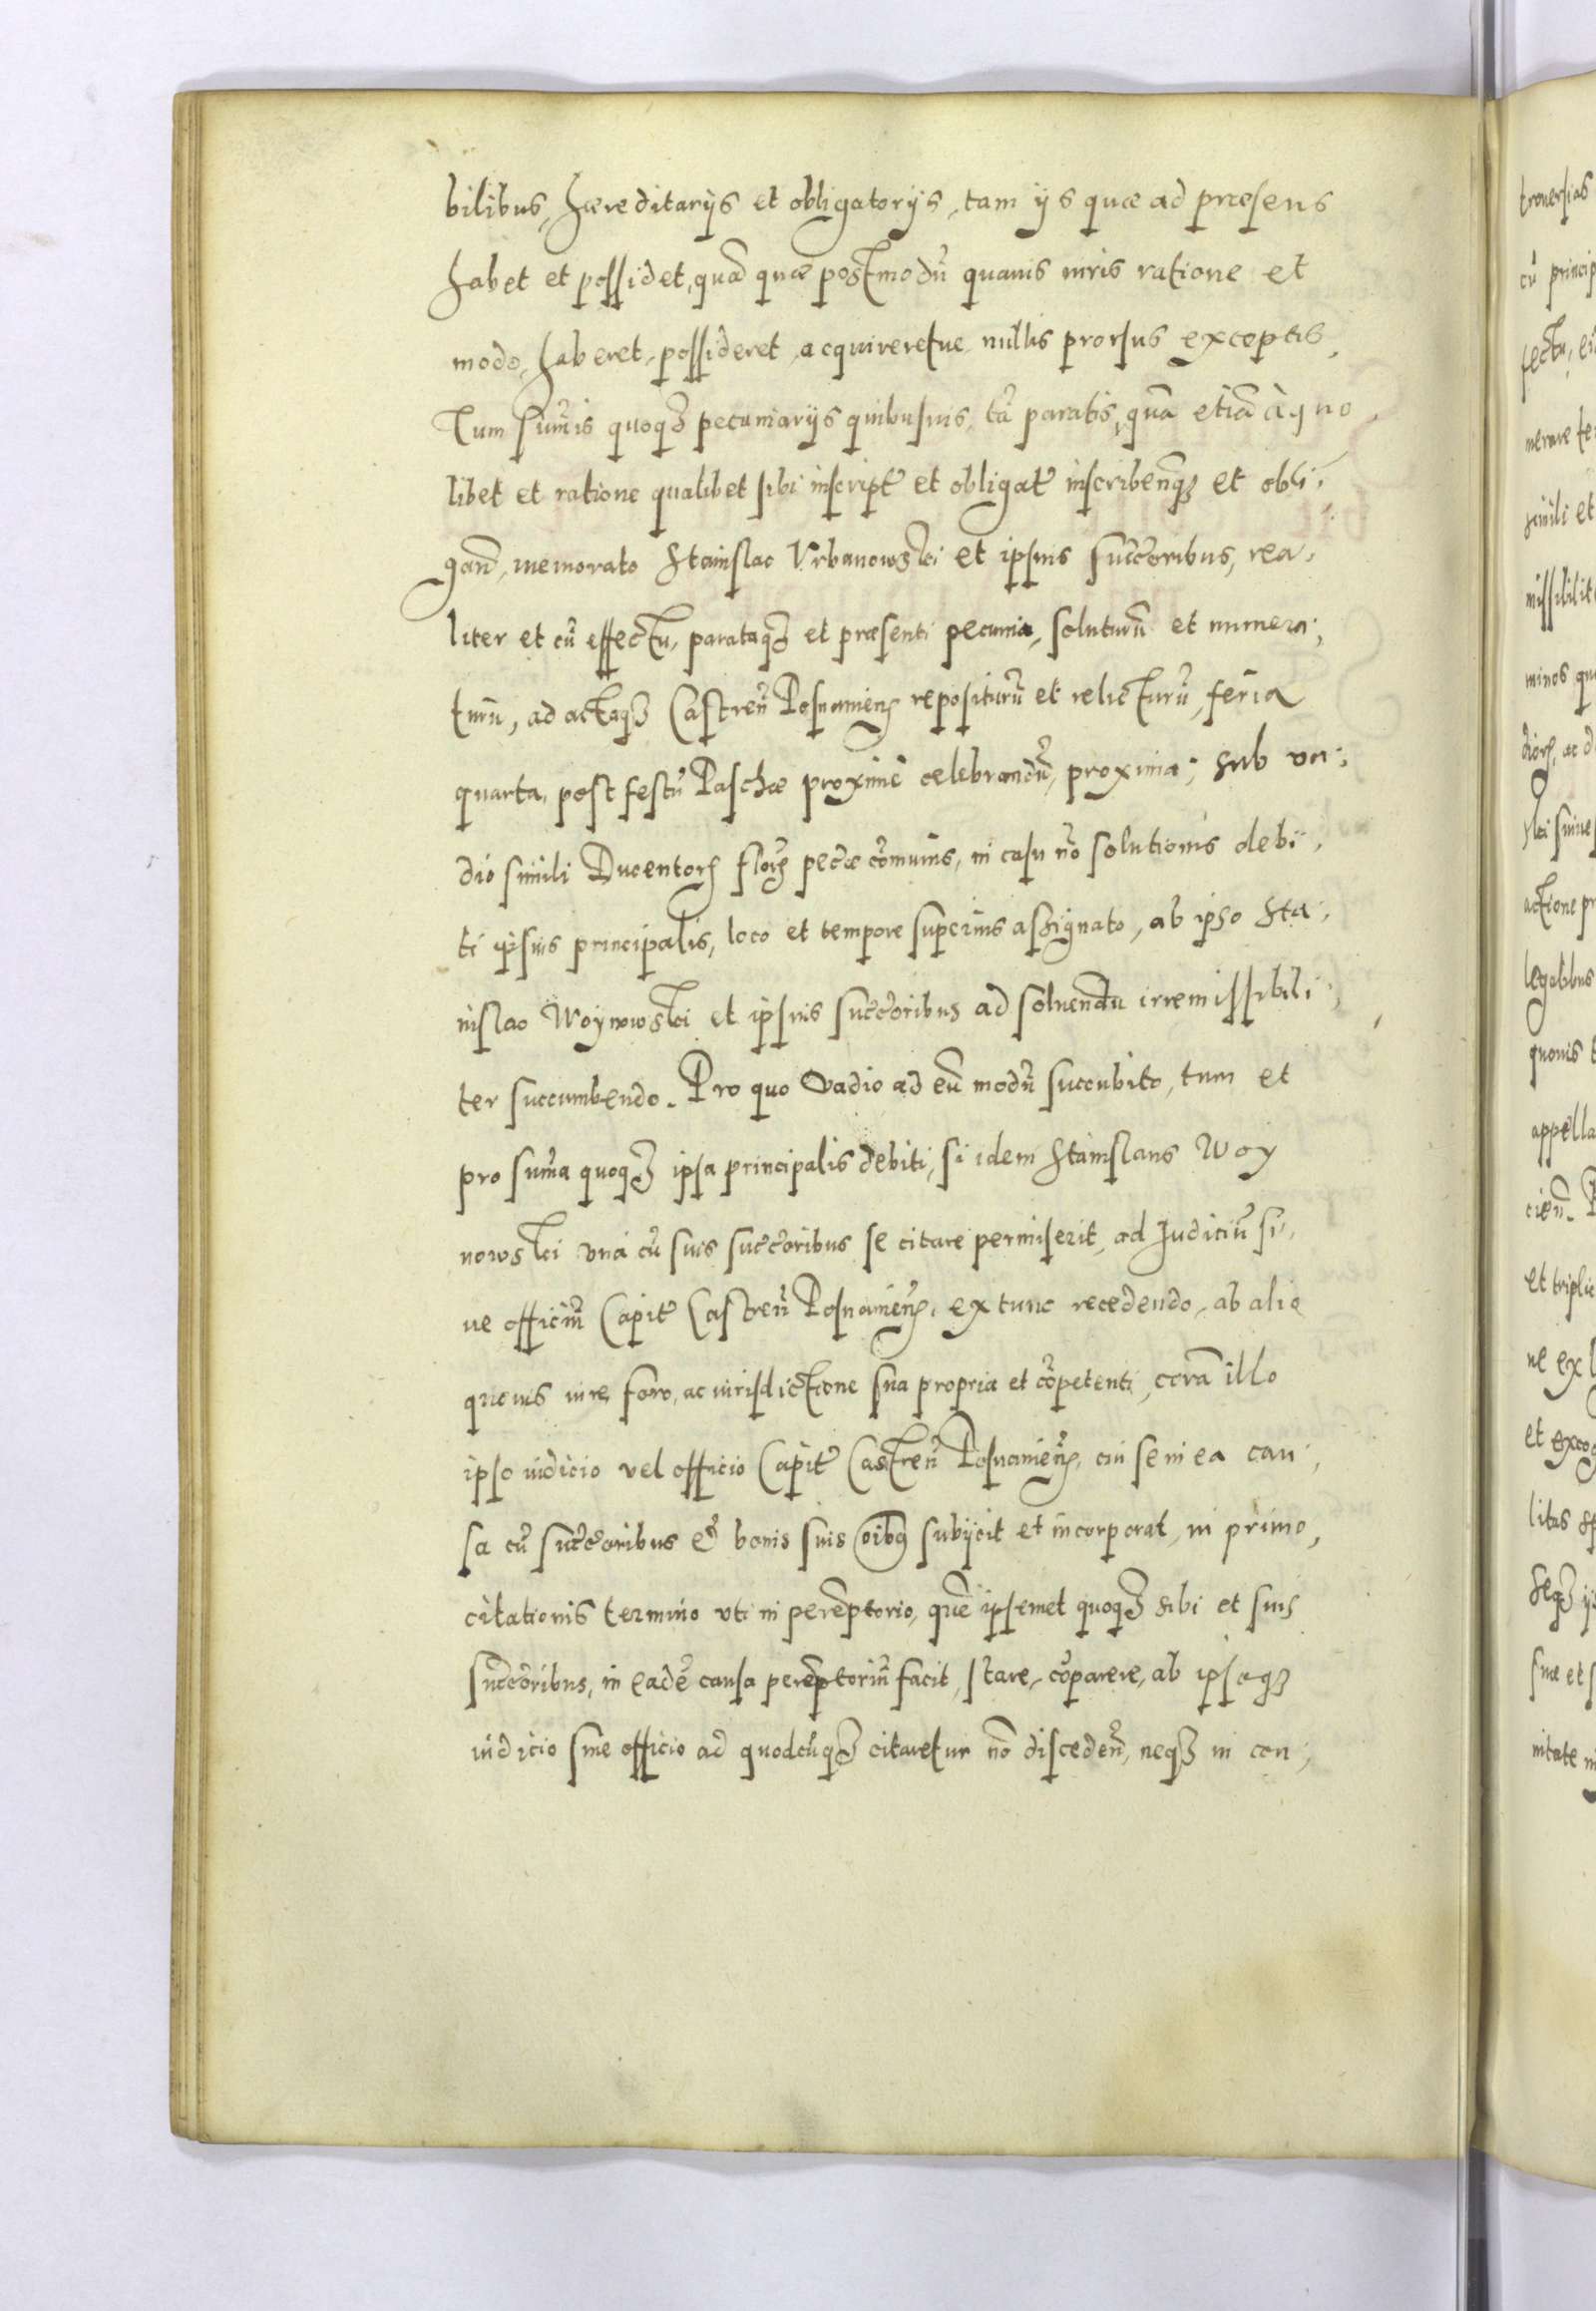 bilibus, hæreditarijs et obligatorijs, tam ijs quæ ad præsens
habet et possidet, quā quæ postmodū quauis iuris ratione et
modo, haberet, possideret, acquireretue nullis prorsus exceptis,
Tum sum̄is quoqȝ pecuniarijs quibusuis, tā paratis, quā etiā à quo
libet et ratione qualibet sibi inscript̄ et obligat̄ inscribenqȝ et obli,
gan̄, memorato Stanislao Vrbanowski et ipsius succ̄oribus, rea,
liter et cū effectu, parataqȝ et præsenti pecunia, soluturū et numera,
turū, ad actaqȝ Castren̄ Posnanien̄ repositurū et relicturū, feria
quarta, post festū Paschæ proximè celebrandū, proxima; sub va;
dio simili Ducentorꝝ florꝝ pec̄æ cōmunis, in casu nō solutionis debi,
ti ipsius principalis, loco et tempore superius assignato, ab ipso Sta,
nislao Woynowski et ipsius succ̄oribus ad soluendū irremissibili,
ter succumbendo. Pro quo Vadio ad eū modū succubito, tum et
pro sum̄a quoqȝ ipsa principalis debiti, si idem Stanislaus Woy
nowski vnà cū suis succ̄oribus se citare permiserit, ad Iudiciū si,
ue officiū Capit̄ Castren̄ Posnanien̄, ex tunc recedendo, ab alio
quouis iure, foro, ac iurisdictione sua propria et cōpetenti, corā illo
ipso iudicio vel officio Capit̄ Castren̄ Posnanien̄, cui se in ea cau,
sa cū succ̄oribus et bonis suis oībꝯ subijcit et incorporat, in primo,
citationis termino vti in perēptorio, quē ipsemet quoqȝ sibi et suis
succ̄oribus, in eadē causa perēptoriū facit, stare, cōparere, ab ipsoqȝ
iudicio siue officio ad quodcūqȝ citaretur nō disceden̄, neqȝ in con,